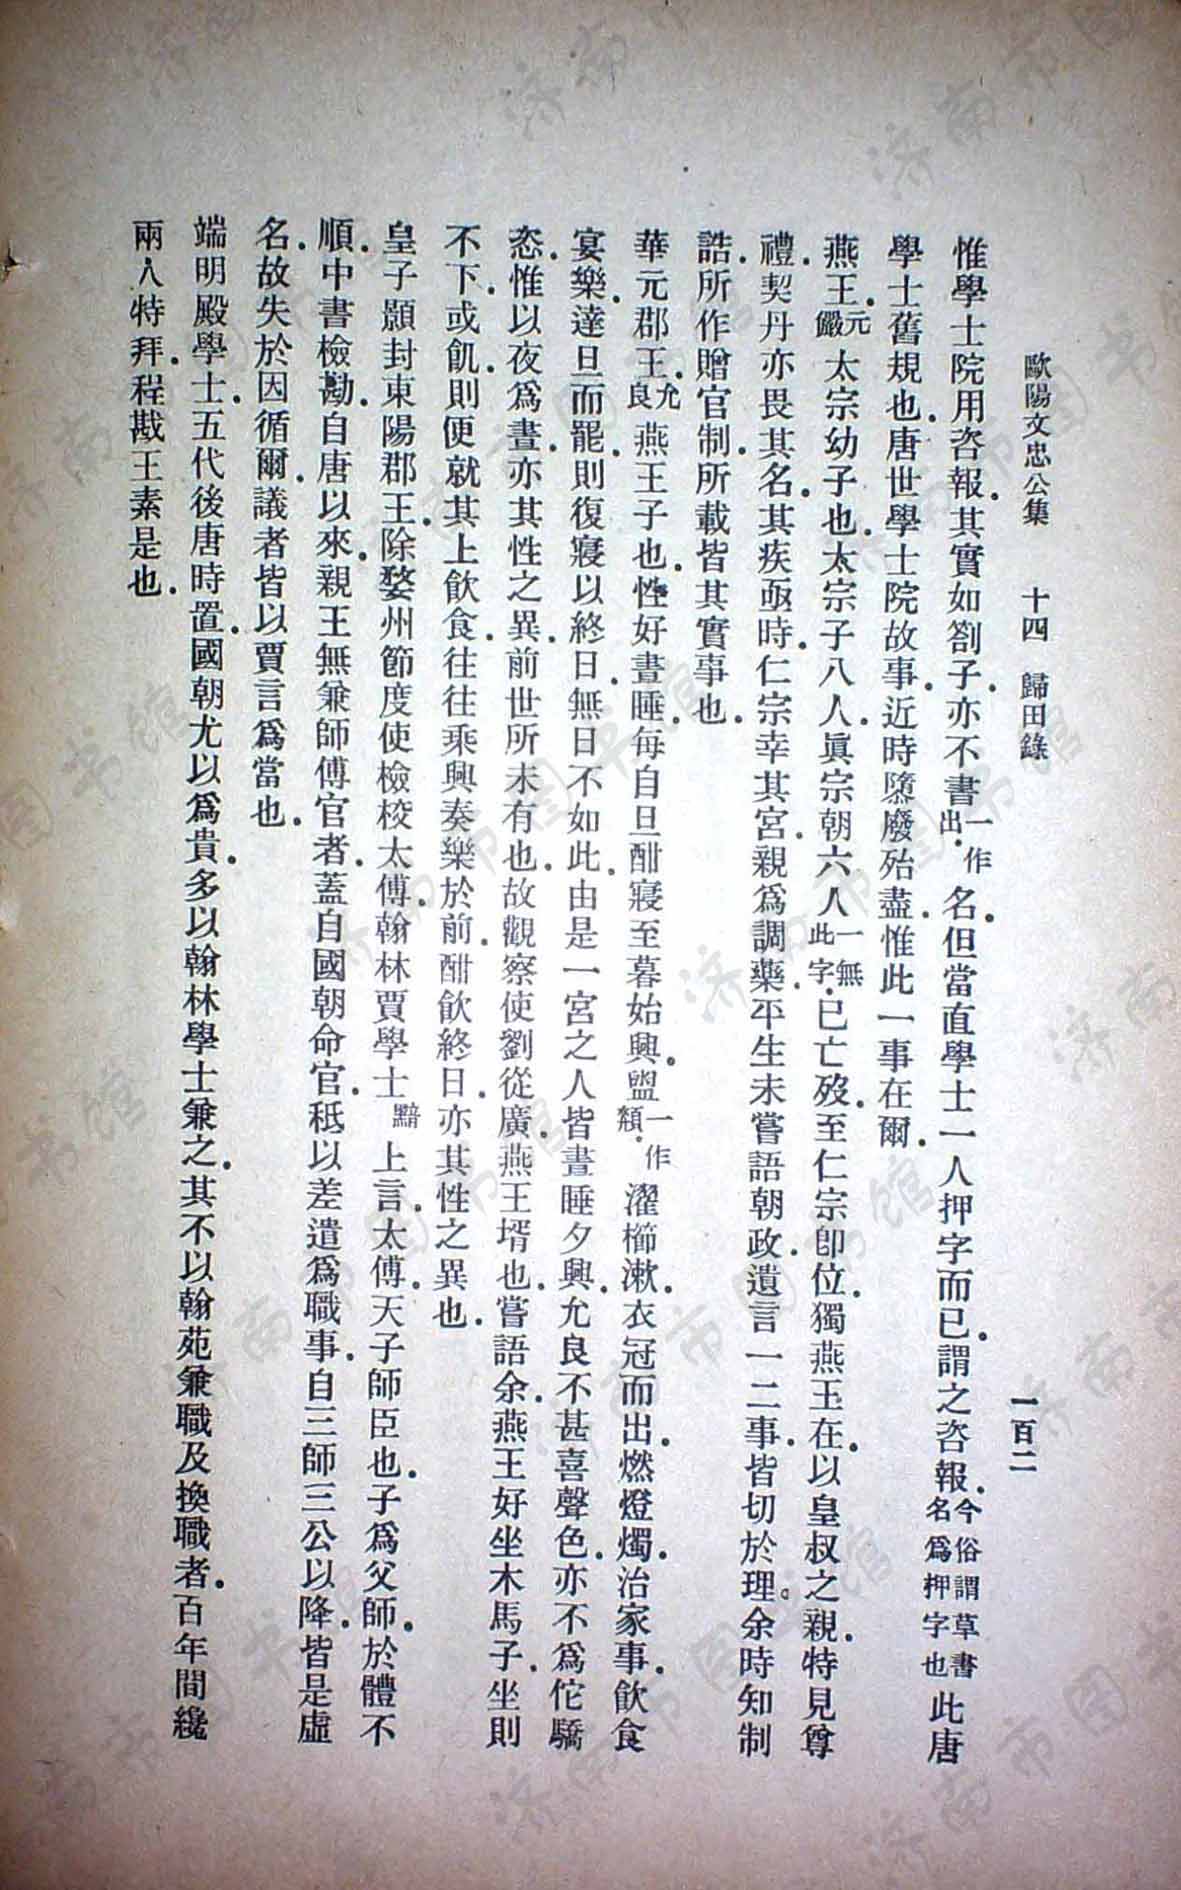 歐陽文忠公集　十四　歸田錄　一百二
惟學士院用咨報.其實如劄子.亦不書一作出.名.但當直學士一人押字而已.謂之咨報.今俗謂草書名爲押字也此唐
學士舊規也.唐世學士院故事.近時隳廢殆盡.惟此一事在爾.
燕王.元儼太宗幼子也.太宗子八人.眞宗朝六人一無此字.已亡歿.至仁宗卽位.獨燕王在.以皇叔之親.特見尊
禮.契丹亦畏其名.其疾亟時.仁宗幸其宮.親爲調藥.平生未嘗語朝政.遺言一二事.皆切於理。余時知制
誥.所作贈官制.所載皆其實事也.
華元郡王.允良燕王子也.性好晝睡.每自旦酣寢至暮始興.盥一作頮.濯櫛漱.衣冠而出.燃燈燭.治家事.飮食
宴樂.達旦而罷.則復寢以終日.無日不如此.由是一宮之人皆晝睡夕興.允良不甚喜聲色.亦不爲佗驕
恣.惟以夜爲晝.亦其性之異.前世所未有也.故觀察使劉從廣.燕王壻也.嘗語余.燕王好坐木馬子.坐則
不下.或飢.則便就其上飮食.往往乘興奏樂於前.酣飮終日.亦其性之異也.
皇子顥封東陽郡王.除婺州節度使檢校太傅.翰林賈學士黯上言.太傅.天子師臣也.子爲父師.於體不
順.中書檢勘.自唐以來.親王無兼師傅官者.蓋自國朝命官.秖以差遣爲職事.自三師三公以降.皆是虛
名.故失於因循爾.議者皆以賈言爲當也.
端明殿學士.五代後唐時置.國朝尤以爲貴.多以翰林學士兼之.其不以翰苑兼職及換職者.百年間纔
兩人特拜.程戡王素是也.